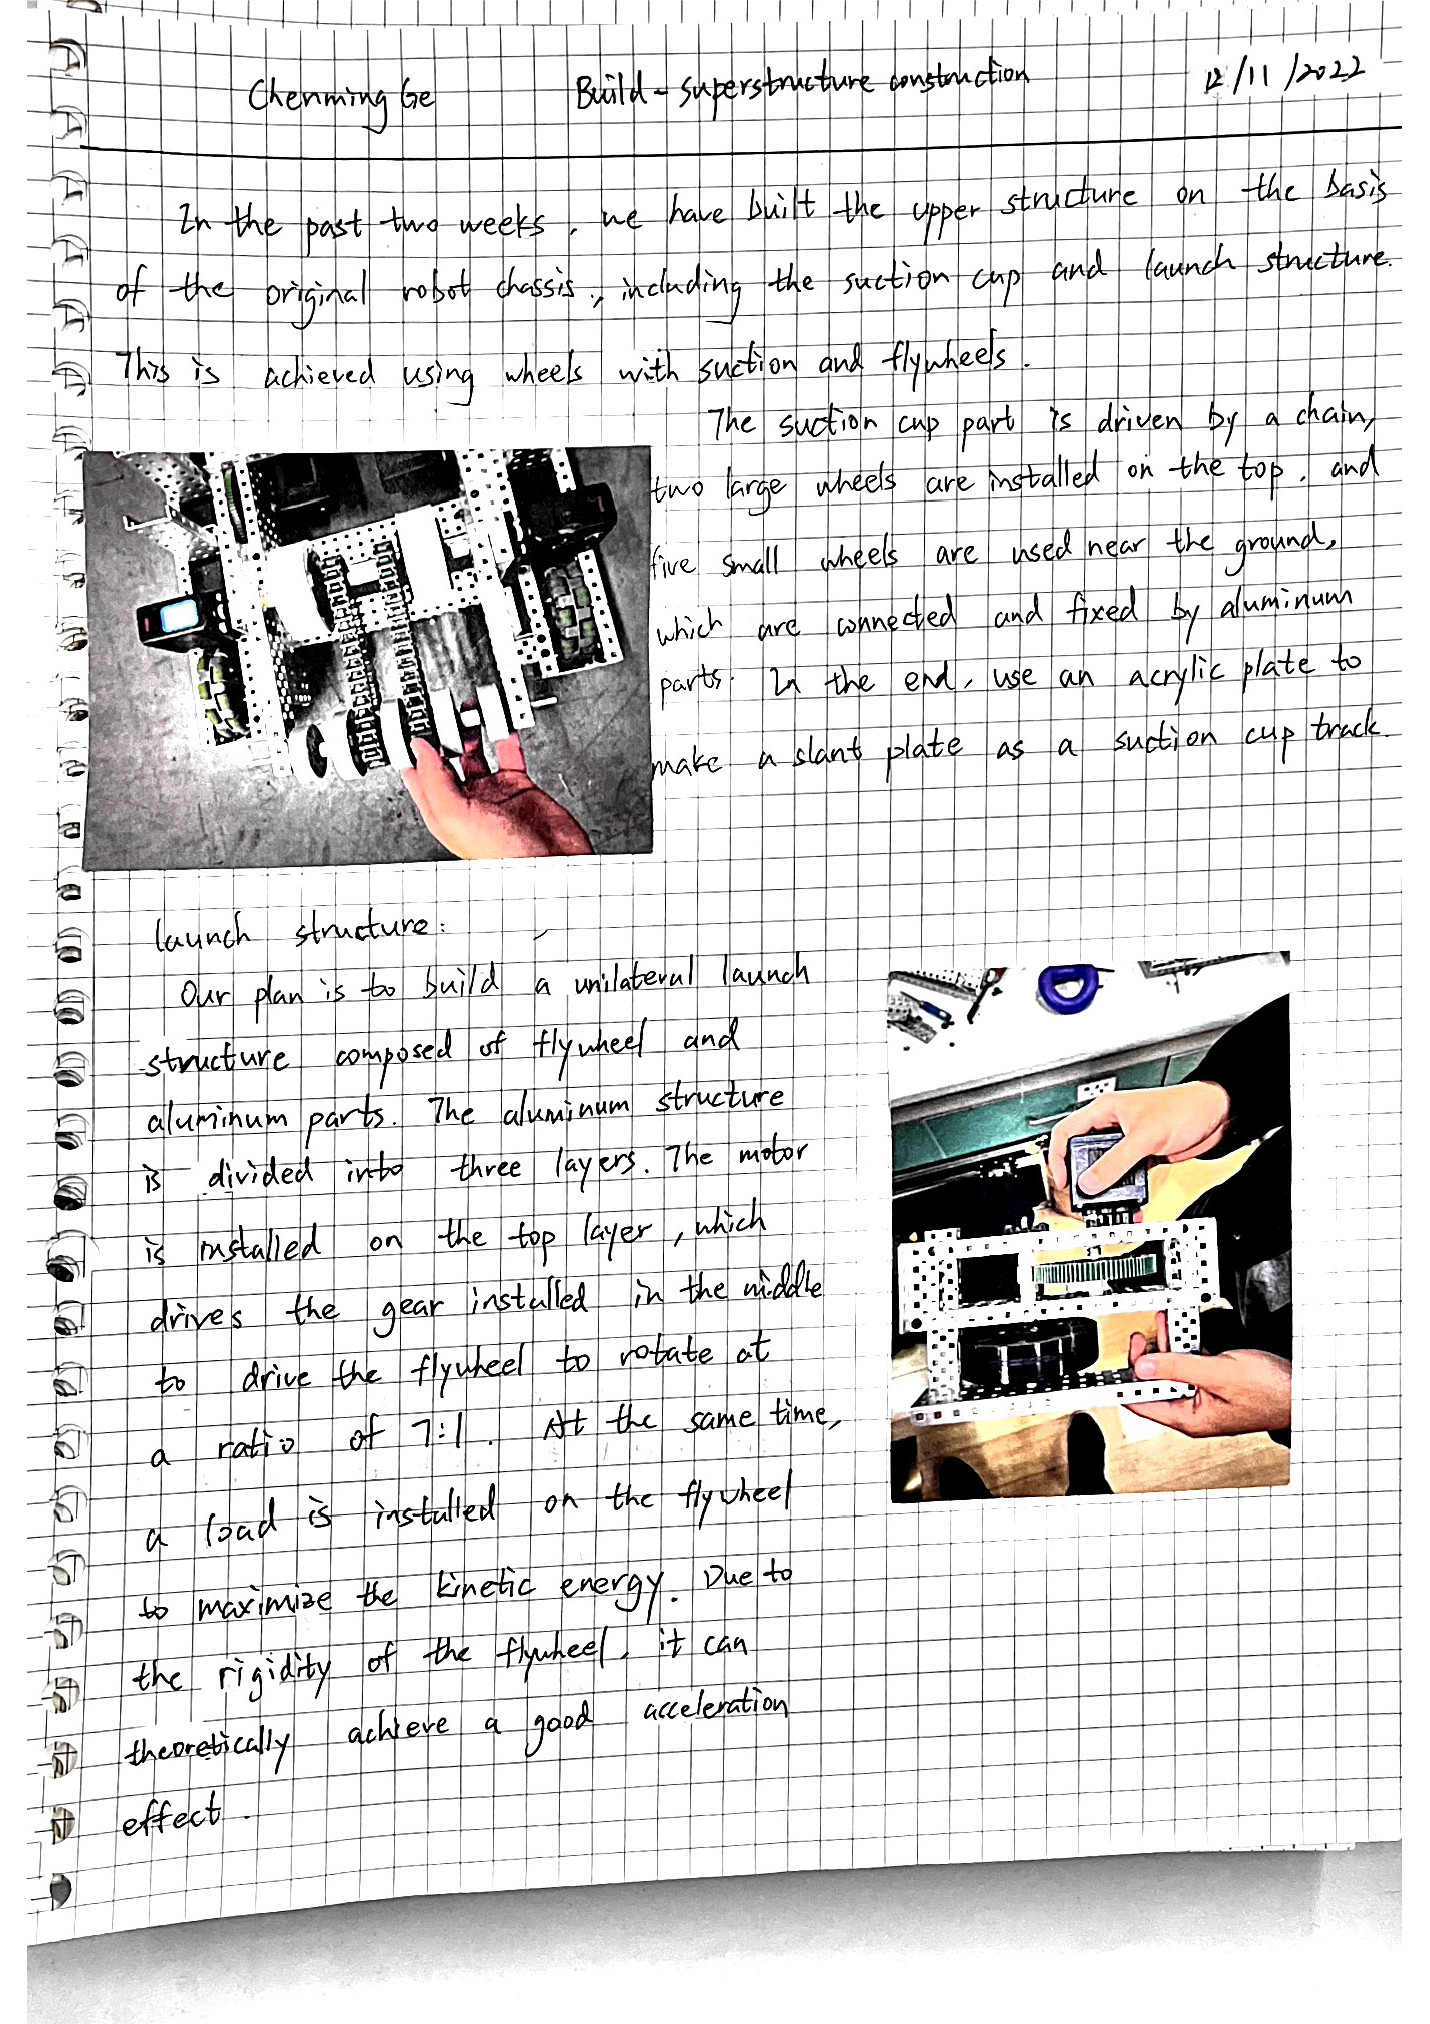 Chenming Ge Build - superstructure construction 12/11/2022
In the past two weeks, we have built the upper structure on the basis
of the original robot chassis, including the suction cup and launch structure.
This is achieved using wheels with suction and flywheels.
The suction cup part is driven by a chain,
two large wheels are installed on the top, and
five small wheels are used near the ground,
which are connected and fixed by aluminum
parts. In the end, use an acrylic plate to
make a slant plate as a suction cup track.
launch structure:
Our plan is to build a unilateral launch
structure composed of flywheel and
aluminum parts. The aluminum structure
is divided into three layers. The motor
is installed on the top layer, which
drives the gear installed in the middle
to drive the flywheel to rotate at
a ratio of 7:1. At the same time,
a load is installed on the flywheel
to maximize the kinetic energy. Due to
the rigidity of the flywheel, it can
theoretically achieve a good acceleration
effect.